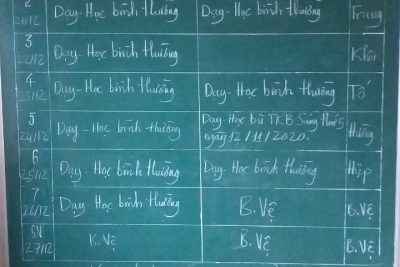 2 Dạy-Học bình thường Dạy-Học bình thường Trung
21/12
3 Dạy-Học bình thường Khôi
22/12
4 Dạy-Học bình thường Dạy-Học bình thường Tố
23/12
5 Dạy-Học bình thường Dạy-Học bù TKB Sáng thứ 5
24/12 ngày 12/11/2020. Hường
6 Dạy-Học bình thường Dạy-Học bình thường Hiệp
25/12
7 Dạy-Học bình thường B.Vệ B.Vệ
26/12
CN B.Vệ B.Vệ B.Vệ
27/12